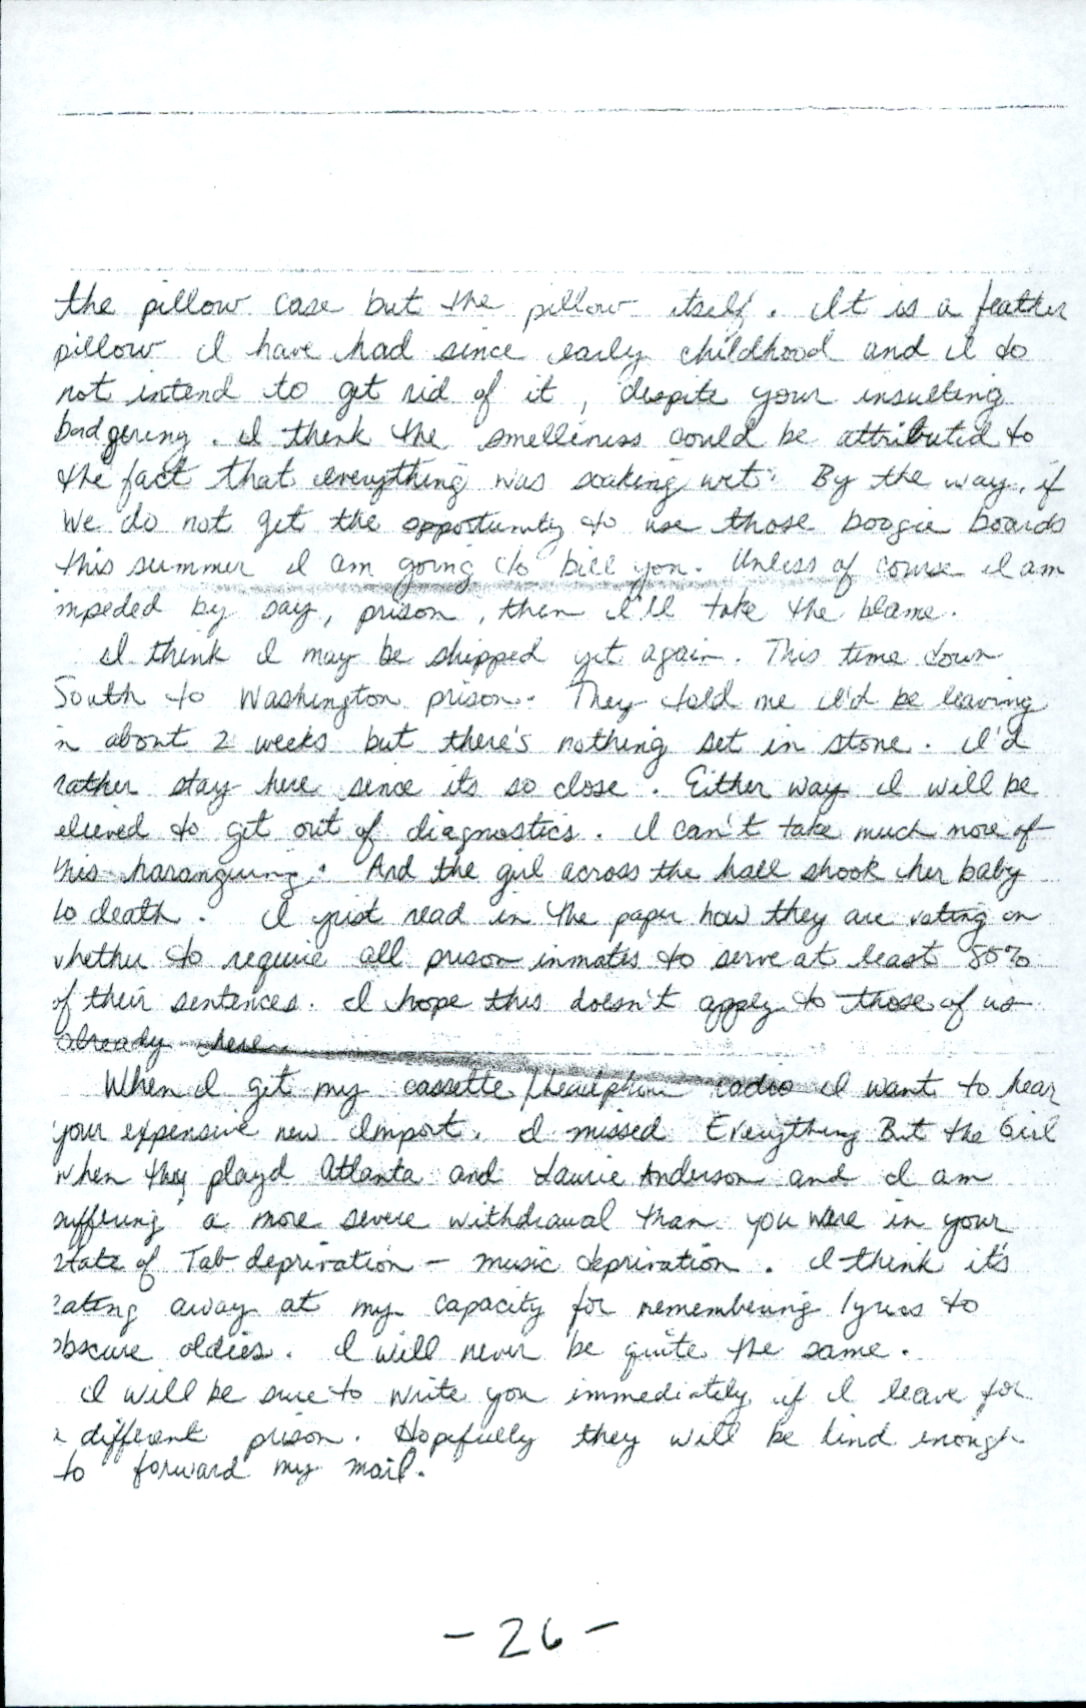 the pillow case but the pillow itself. It is a feather
pillow I have had since early childhood and I do
not intend to get rid of it, despite your insulting
badgering. I think the smelliness could be attributed to
the fact that everything was soaking wet. By the way, if
we do not get the opportunity to use those boogie boards
this summer I am going to bill you. Unless of course I am
impeded by say, prison, then I'll take the blame.
I think I may be shipped yet again. This time down
South to Washington prison. They told me I'd be leaving
in about 2 weeks but there's nothing set in stone. I'd
rather stay here since its so close. Either way I will be
elieved to get out of diagnostics. I can't take much more of
this haranguing. And the girl across the hall shook her baby
to death. I just read in the paper how they are voting on
whether to require all prison inmates to serve at least 80%
of their sentences. I hope this doesn't apply to those of us
already here.
When I get my cassette/headphone radio I want to hear
your expensive new Import. I missed Everything But the Girl
when they playd Atlanta and Laurie Anderson and I am
suffering a more severe withdrawal than you were in your
state of Tab deprivation – music deprivation. I think it's
eating away at my capacity for remembering lyrics to
obscure oldies. I will never be quite the same.
I will be sure to write you immediately if I leave for
a different prison. Hopefully they will be kind enough
to forward my mail.
- 26 -